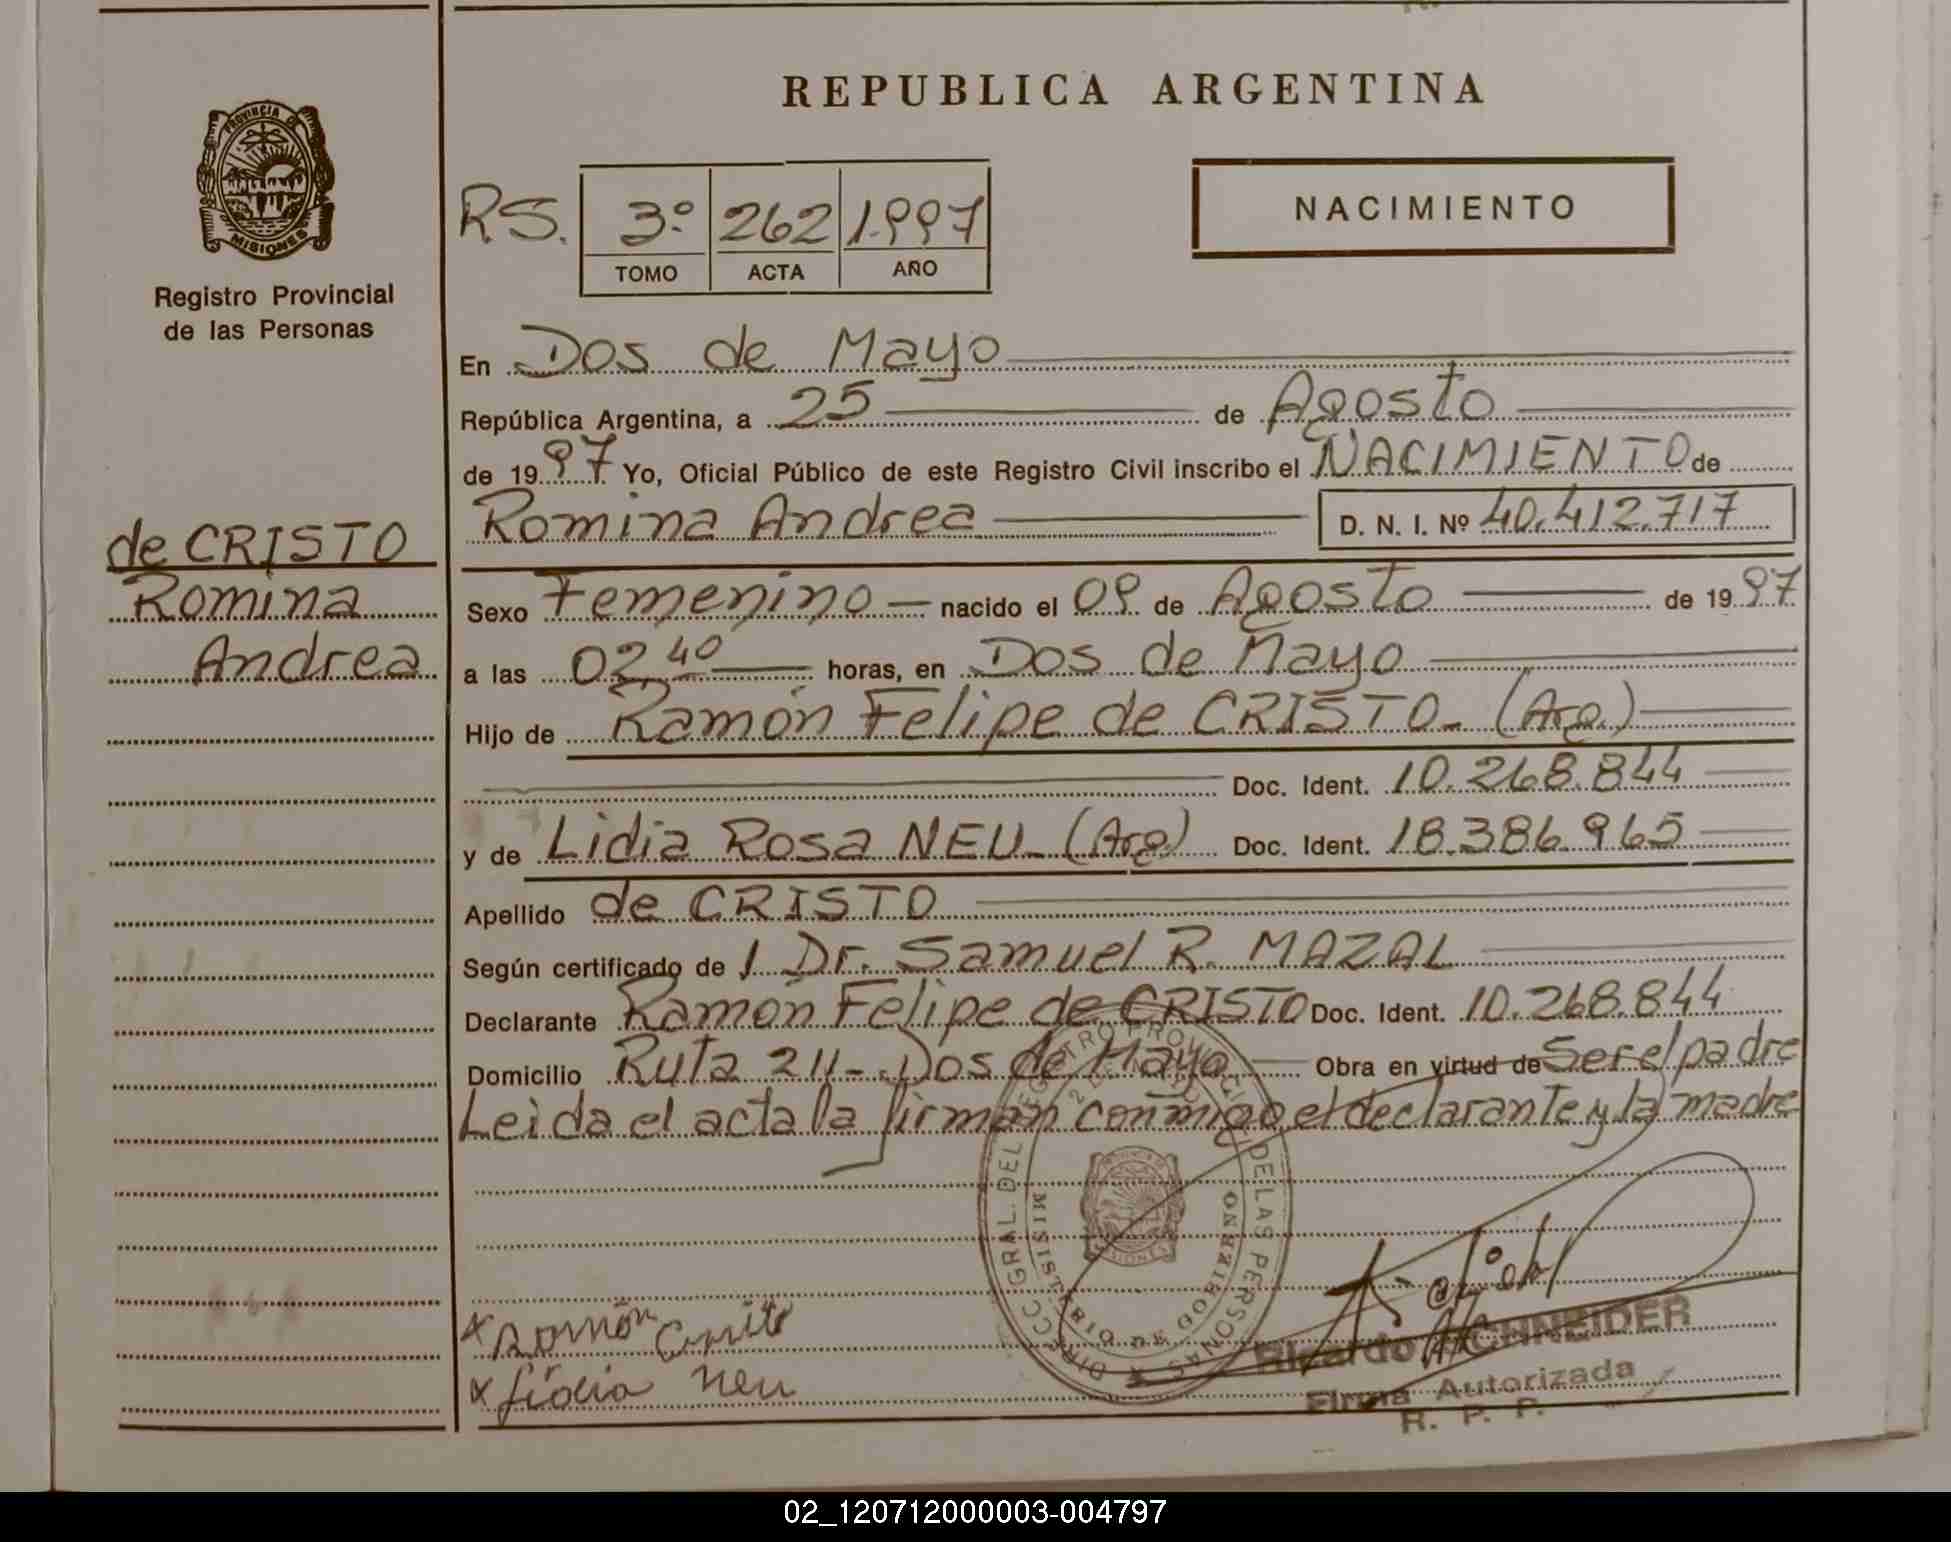 REPUBLICA ARGENTINA
PROVINCIA DE
MISIONES
Registro Provincial
de las Personas
RS. 3º 262 1.997
TOMO ACTA AÑO
NACIMIENTO
En Dos de Mayo
República Argentina, a 25 de Agosto
de 1997 Yo, Oficial Público de este Registro Civil inscribo el NACIMIENTO de
Romina Andrea D. N. I. Nº 40.412.717
de CRISTO
Romina
Andrea
Sexo Femenino nacido el 09 de Agosto de 1997
a las 02 40 horas, en Dos de Mayo
Hijo de Ramón Felipe de CRISTO_ (Arg.)
Doc. Ident. 10.268.844
y de Lidia Rosa NEU_ (Arg) Doc. Ident. 18.386.965
Apellido de CRISTO
Según certificado de / Dr. Samuel R. MAZAL
Declarante Ramón Felipe de CRISTO Doc. Ident. 10.268.844
Domicilio Ruta 211-. Dos de Mayo Obra en virtud de Ser el padre
Leida el acta la firman conmigo el declarante y la madre
DIRECC. GRAL. DEL REGISTRO PROVINCIAL DE LAS PERSONAS
MINISTERIO DE GOBIERNO
MISIONES
x Ramón Cristo
x Lidia Neu
Ricardo A. SCHNEIDER
Firma Autorizada
R. P. P.
02_120712000003-004797